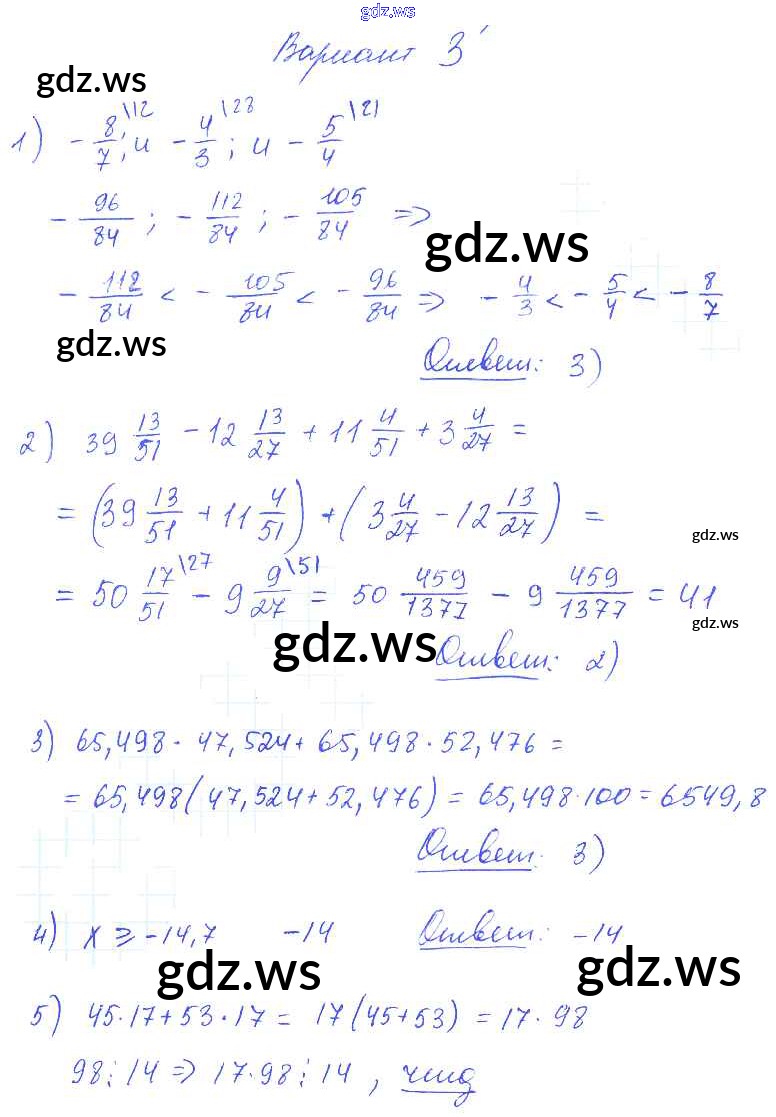 gdz.ws
Вариант 3
gdz.ws
1) - 8/7\12; и - 4/3\28; и - 5/4\21
- 96/84; - 112/84; - 105/84 ⇒
gdz.ws
- 112/84 < - 105/84 < - 96/84 ⇒ - 4/3 < - 5/4 < - 8/7
gdz.ws
Ответ: 3)
2) 39 13/51 - 12 13/27 + 11 4/51 + 3 4/27 =
= (39 13/51 + 11 4/51) + (3 4/27 - 12 13/27) =
gdz.ws
= 50 17/51\27 - 9 9/27\51 = 50 459/1377 - 9 459/1377 = 41
gdz.ws
gdz.ws
Ответ: 2)
3) 65,498 · 47,524 + 65,498 · 52,476 =
= 65,498(47,524 + 52,476) = 65,498·100 = 6549,8
Ответ: 3)
4) x ⩾ -14,7 -14 Ответ: -14
gdz.ws
gdz.ws
5) 45·17 + 53·17 = 17(45+53) = 17·98
98⋮14 ⇒ 17·98⋮14, чтд